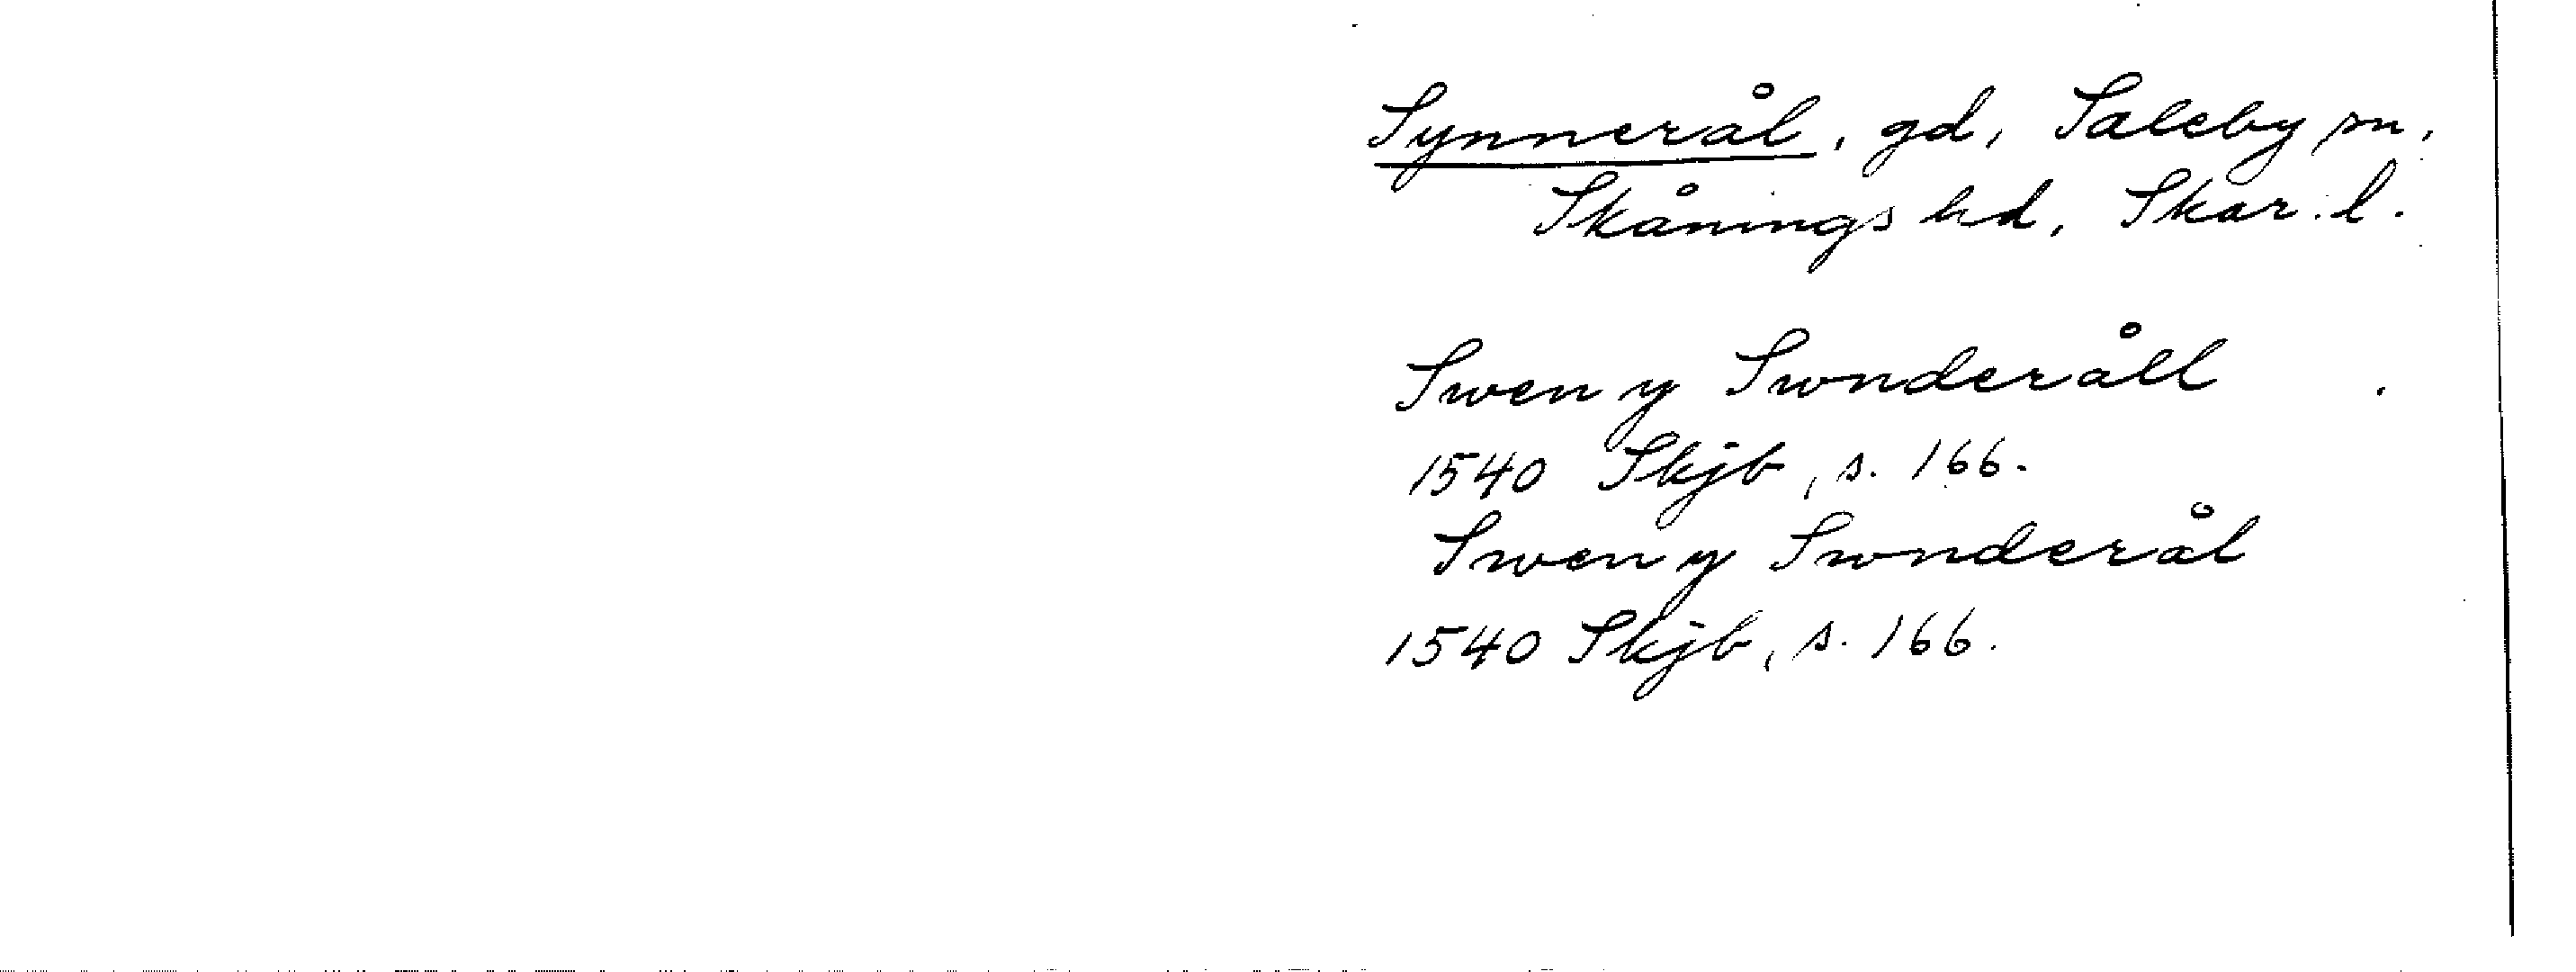 Synnerål, gd, Saleby sn,
Skånings hd, Skar. l.
Swen y Swnderåll
1540 Skjb, s. 166.
Swen y Swnderål
1540 Skjb, s. 166.